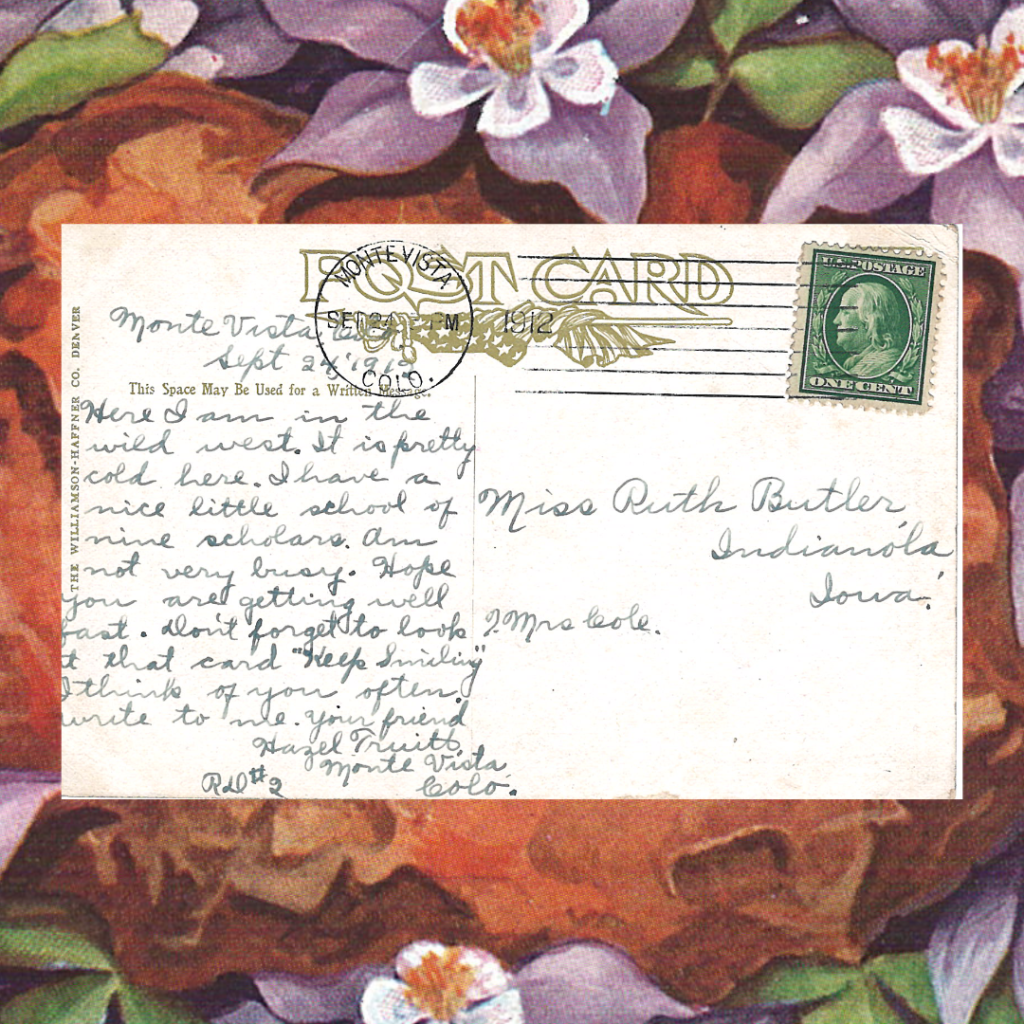 POST CARD
MONTE VISTA
SEP 24
PM
1912
COLO.
U.S. POSTAGE
ONE CENT
THE WILLIAMSON-HAFFNER CO. DENVER
Monte Vista Colo.
Sept 24 1912
This Space May Be Used for a Written Message.
Here I am in the
wild west. It is pretty
cold here. I have a
nice little school of
nine scholars. Am
not very busy. Hope
you are getting well
fast. Don't forget to look
t that card "Keep Smiling"
I think of you often.
write to me. Your friend
Hazel Truitt,
Monte Vista
RD #2 Colo.
Miss Ruth Butler
Indianola
Iowa.
Mrs Cole.